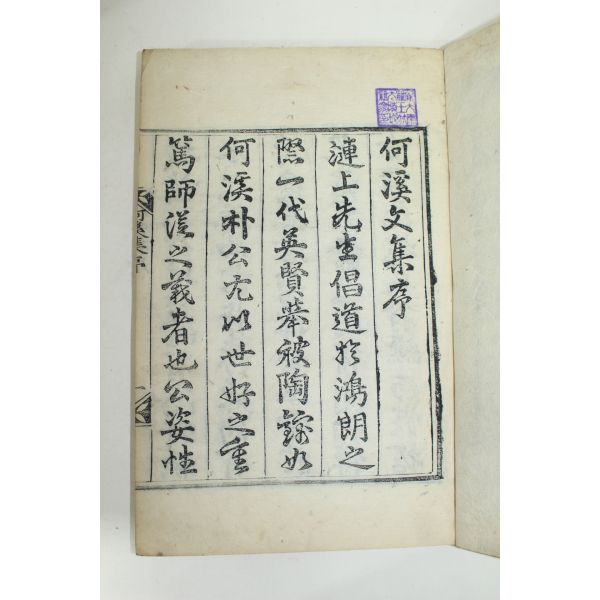 何溪文集序
漣上先生倡道於鴻朗之
際一代英賢擧被陶鎔如
何溪朴公尤以世好之重
篤師從之義者也公姿性
何溪集序